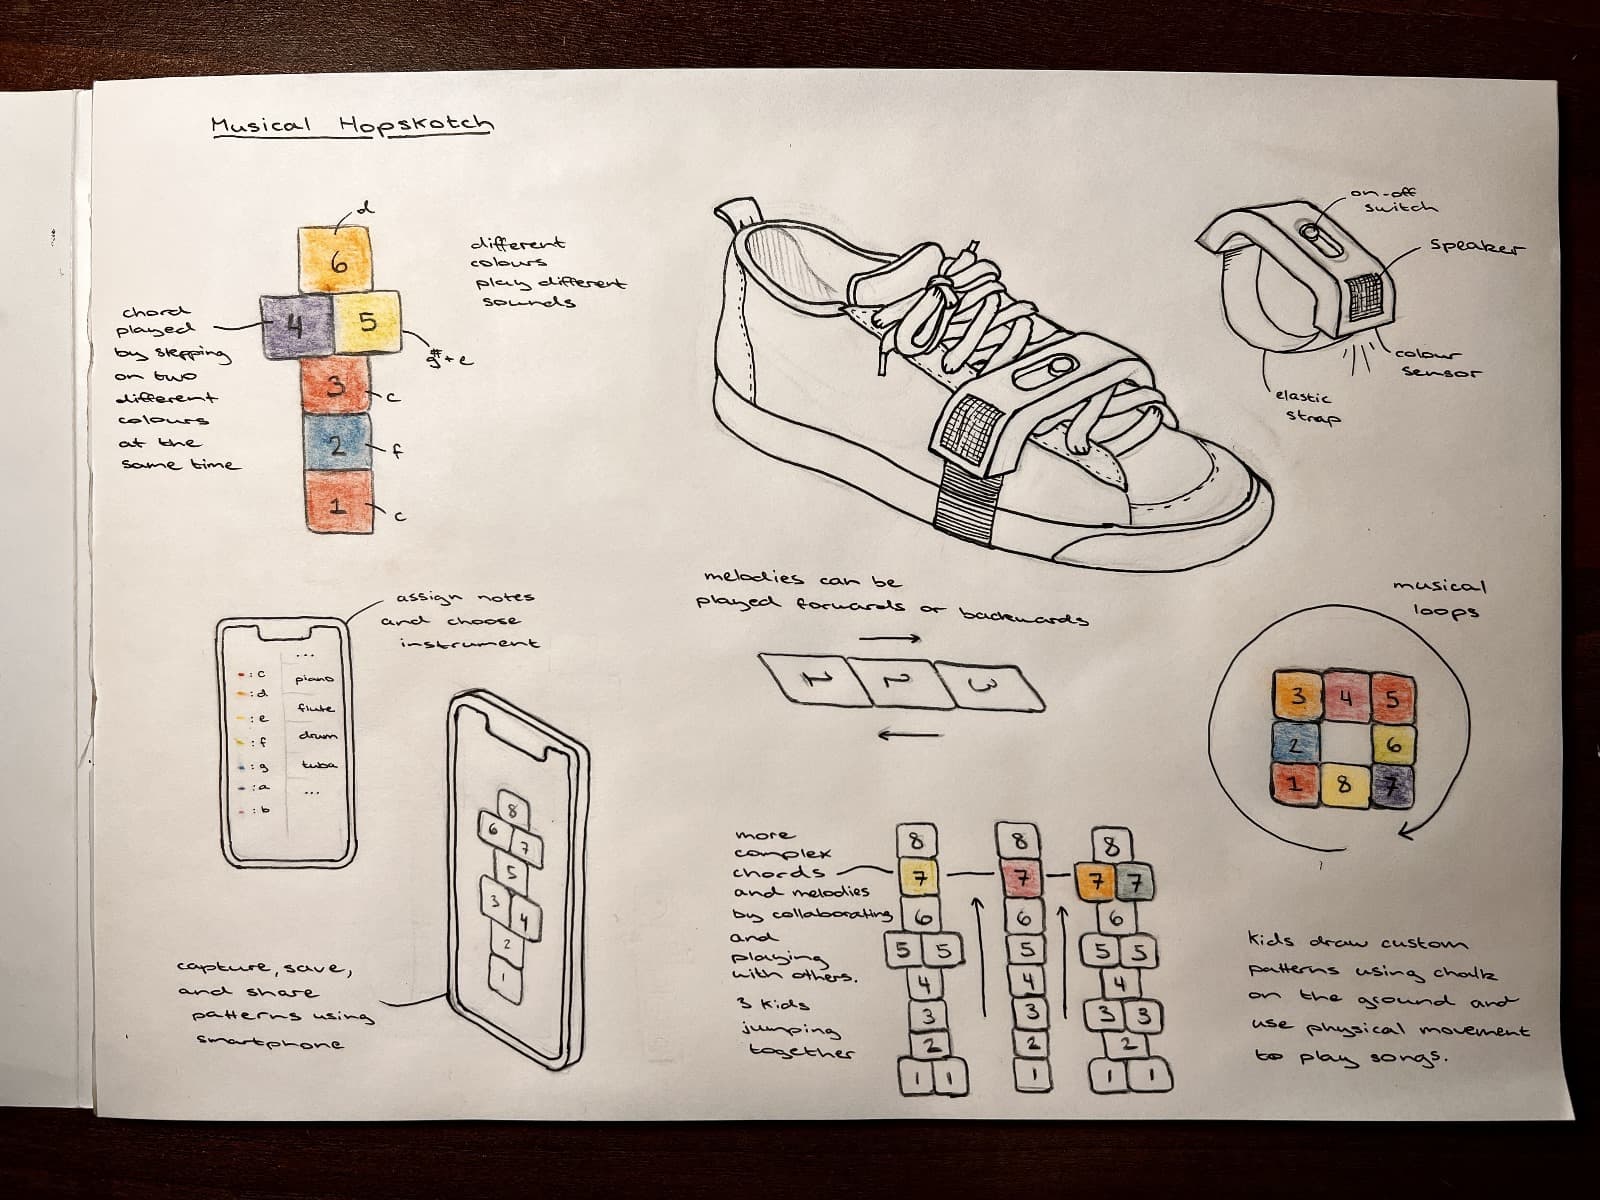 Musical Hopskotch
d
6
4
5
3
2
1
c
f
c
g# + e
chord
played
by stepping
on two
different
colours
at the
same time
different
colours
play different
sounds
on-off
switch
speaker
colour
sensor
elastic
strap
assign notes
and choose
instrument
: c
: d
: e
: f
: g
: a
: b
...
piano
flute
drum
tuba
...
8
6
7
5
3
4
2
1
capture, save,
and share
patterns using
smartphone
melodies can be
played forwards or backwards
1 2 3
musical
loops
3 4 5
2 6
1 8 7
more
complex
chords
and melodies
by collaborating
and
playing
with others.
3 kids
jumping
together
8 8 8
7 7 7 7
6 6 6
5 5 5 5 5
4 4 4
3 3 3 3
2 2 2
1 1 1 1 1
kids draw custom
patterns using chalk
on the ground and
use physical movement
to play songs.